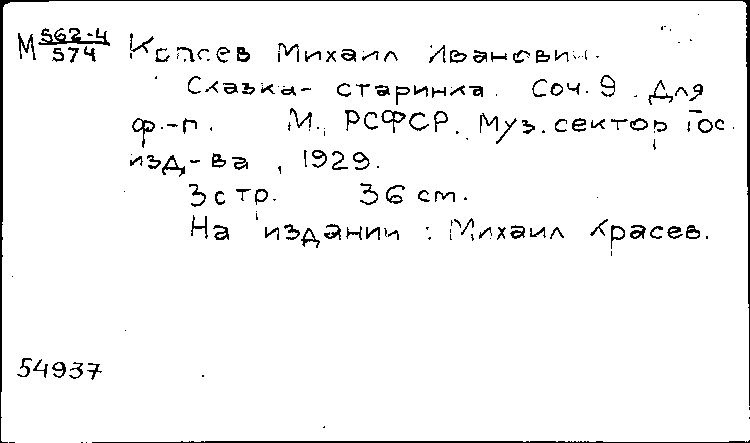 М 562-4/574 Красев Михаил Иванович.
Сказка-старинка. Соч. 9. Для
ф.-п. М., РСФСР. Муз. сектор Гос.
изд-ва, 1929.
3 стр. 36 cm.
На издании: Михаил Красев.
54937